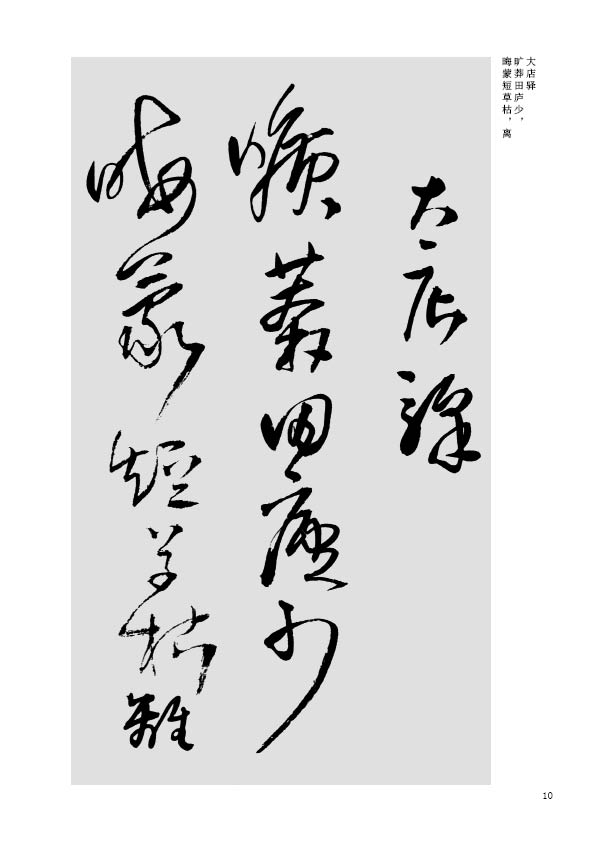 大店驿
旷莽田庐少，
晦蒙短草枯，离
大店驛
曠莽田廬少
晦蒙短草枯離
10